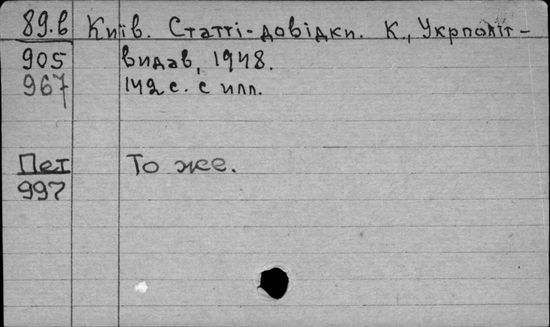 89.в Київ. Статті-довідки. К., Укрполіт-
905 видав, 1948.
967 142 с. с илл.
Пет То же.
997